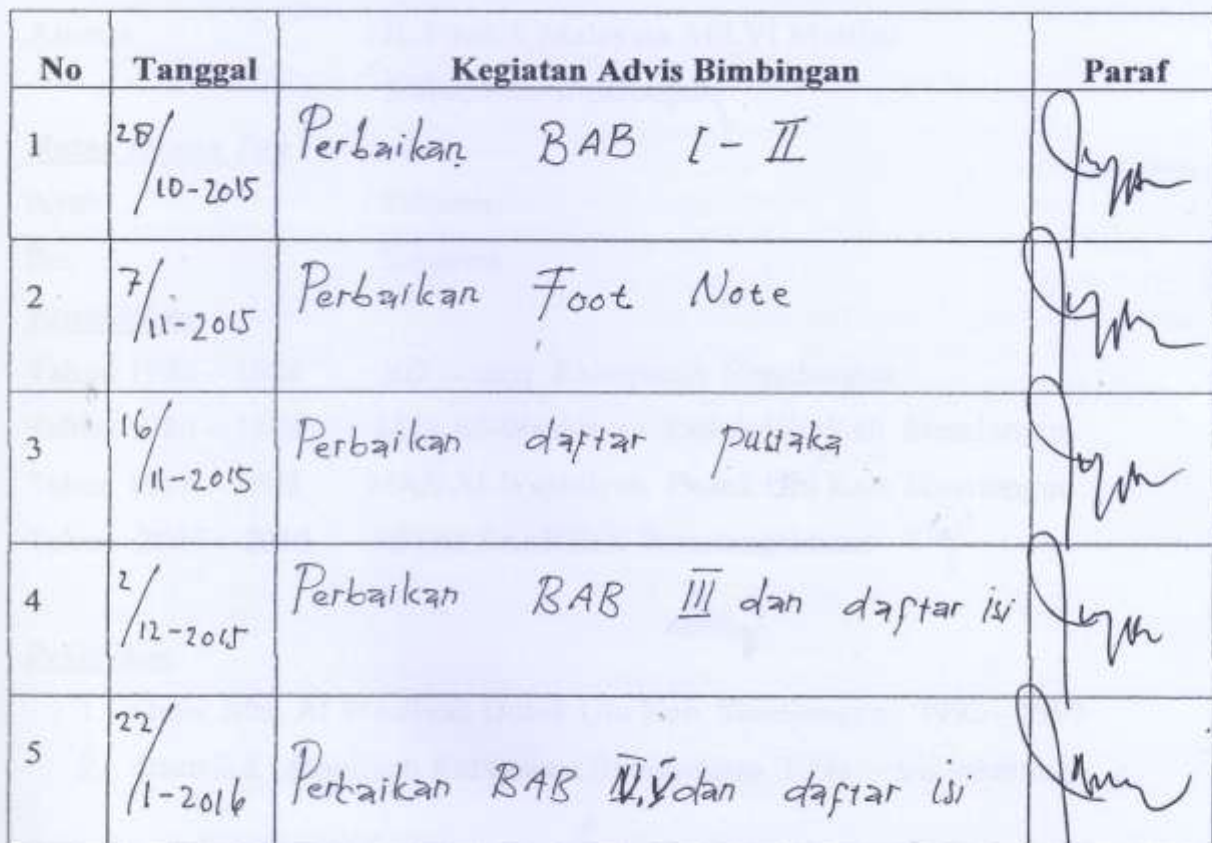 No Tanggal Kegiatan Advis Bimbingan Paraf
1 28/10-2015 Perbaikan BAB I - II
2 7/11-2015 Perbaikan Foot Note
3 16/11-2015 Perbaikan daftar pustaka
4 2/12-2015 Perbaikan BAB III dan daftar isi
5 22/1-2016 Perbaikan BAB IV, V dan daftar isi